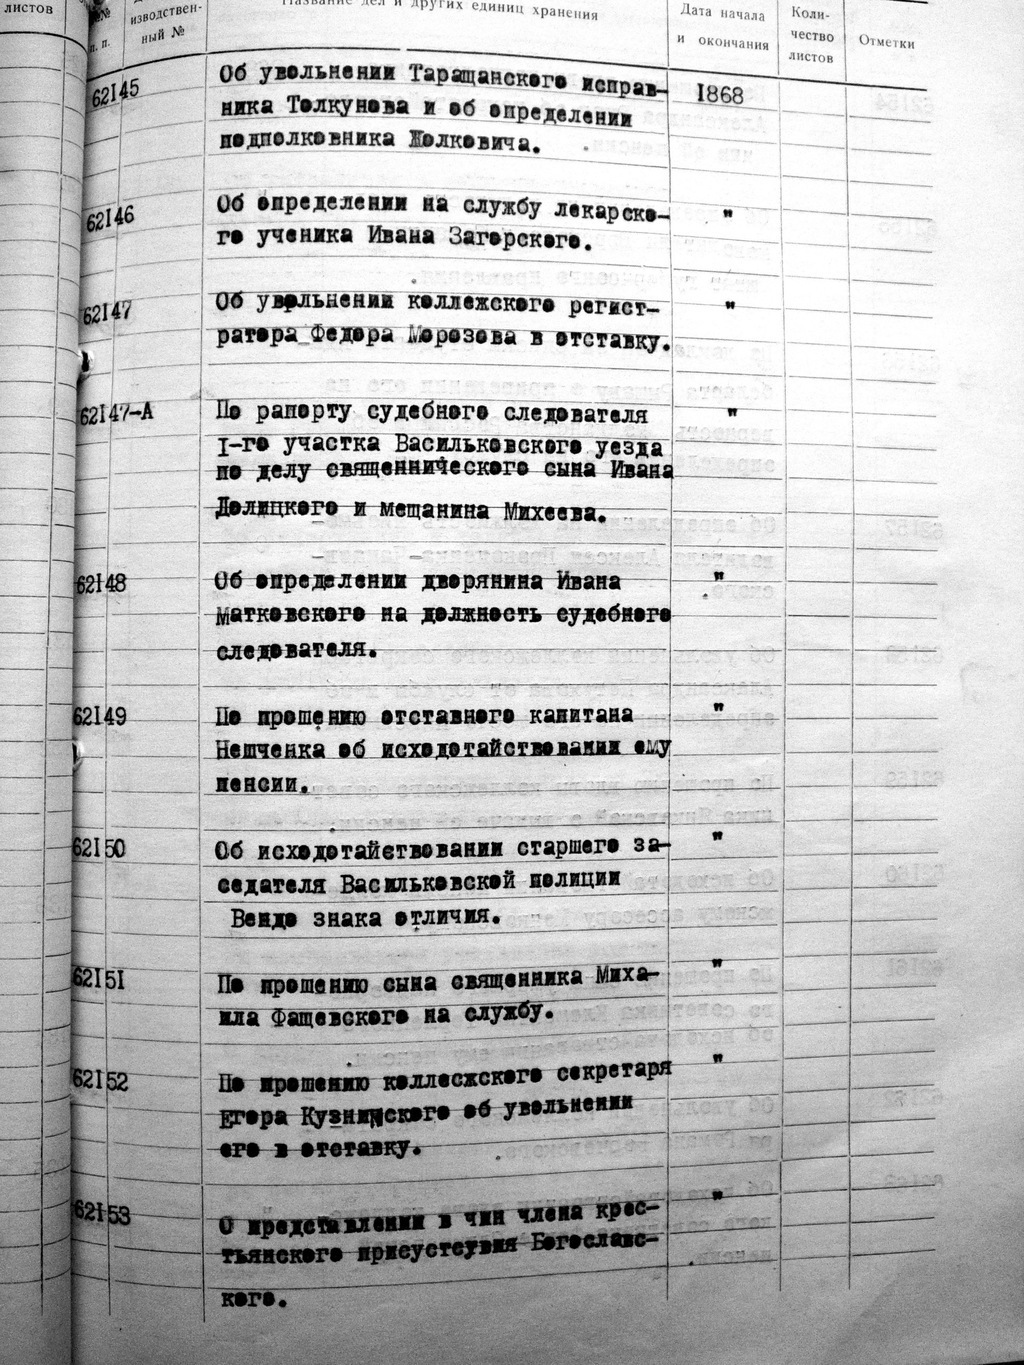 листов
№№
п. п.
изводствен-
ный №
Название дел и других единиц хранения
Дата начала
и окончания
Коли-
чество
листов
Отметки
62145
Об увольнении Таращанского исправ-
ника Толкунова и об определении
подполковника Жолковича.
1868
62146
Об определении на службу лекарско-
го ученика Ивана Загорского.
"
62147
Об увольнении коллежского регист-
ратора Федора Морозова в отставку.
"
62147-А
По рапорту судебного следователя
I-го участка Васильковского уезда
по делу священнического сына Ивана
Долицкого и мещанина Михеева.
"
62148
Об определении дворянина Ивана
Матковского на должность судебного
следователя.
"
62149
По прошению отставного капитана
Нешченка об исходотайствовании ему
пенсии.
"
62150
Об исходотайствовании старшего за-
седателя Васильковской полиции
Вендо знака отличия.
"
62151
По прошению сына священника Миха-
ила Фащевского на службу.
"
62152
По прошению коллесжского секретаря
Егора Кузнинского об увольнении
его в отставку.
"
62153
О представлении в чин члена крес-
тьянского присутствия Богославс-
кого.
"